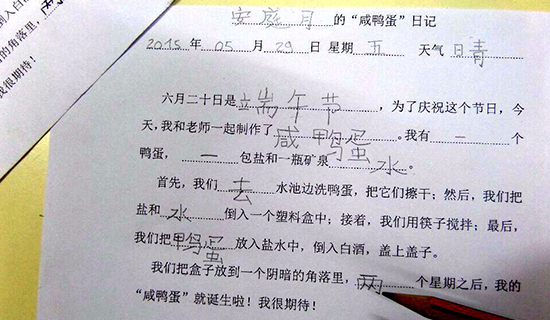 安庭月的“咸鸭蛋”日记
2015年05月29日 星期五 天气 晴
六月二十日是端午节，为了庆祝这个节日，今
天，我和老师一起制作了咸鸭蛋。我有一个
鸭蛋，一包盐和一瓶矿泉水。
首先，我们去水池边洗鸭蛋，把它们擦干；然后，我们把
盐和水倒入一个塑料盒中；接着，我们用筷子搅拌；最后，
我们把鸭蛋放入盐水中，倒入白酒，盖上盖子。
我们把盒子放到一个阴暗的角落里，两个星期之后，我的
“咸鸭蛋”就诞生啦！我很期待！
的角落里，
我很期待！